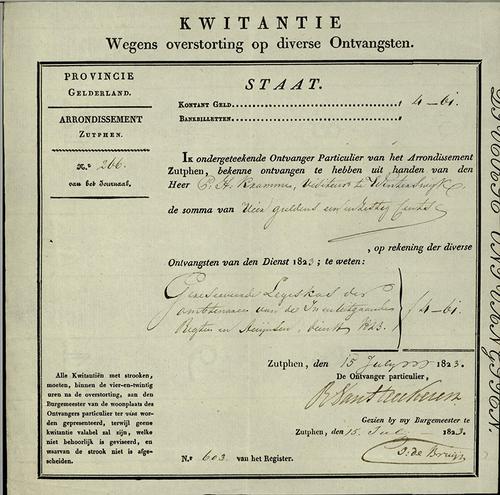 KWITANTIE
Wegens overstorting op diverse Ontvangsten.
PROVINCIE
GELDERLAND.
ARRONDISSEMENT
ZUTPHEN.
N.º 266.
van het Journaal.
STAAT.
KONTANT GELD 4-61.
BANKBILLETTEN.
IK ondergeteekende Ontvanger Particulier van het Arrondissement
Zutphen, bekenne ontvangen te hebben uit handen van den
Heer
de somma van Vier guldens een en zestig Cents
, op rekening der diverse
Ontvangsten van den Dienst 1823; te weten:
der
ambtenaren van de
Regten en Accijnsen, 1823.
ƒ 4-61.
Zutphen, den 15 July 1823.
De Ontvanger particulier,
Gezien by my Burgemeester te
Zutphen, den 15 July 1823.
J. de Bruijn
Alle Kwitantiën met strooken,
moeten, binnen de vier-en-twintig
uren na de overstorting, aan den
Burgemeester van de woonplaats des
Ontvangers particulier ter visé worden
gepresenteerd, terwijl geene
kwitantie valabel zal sijn, welke
niet behoorlijk is geviseerd, en
waarvan de strook niet is afgescheiden.
N.º 603 van het Register.